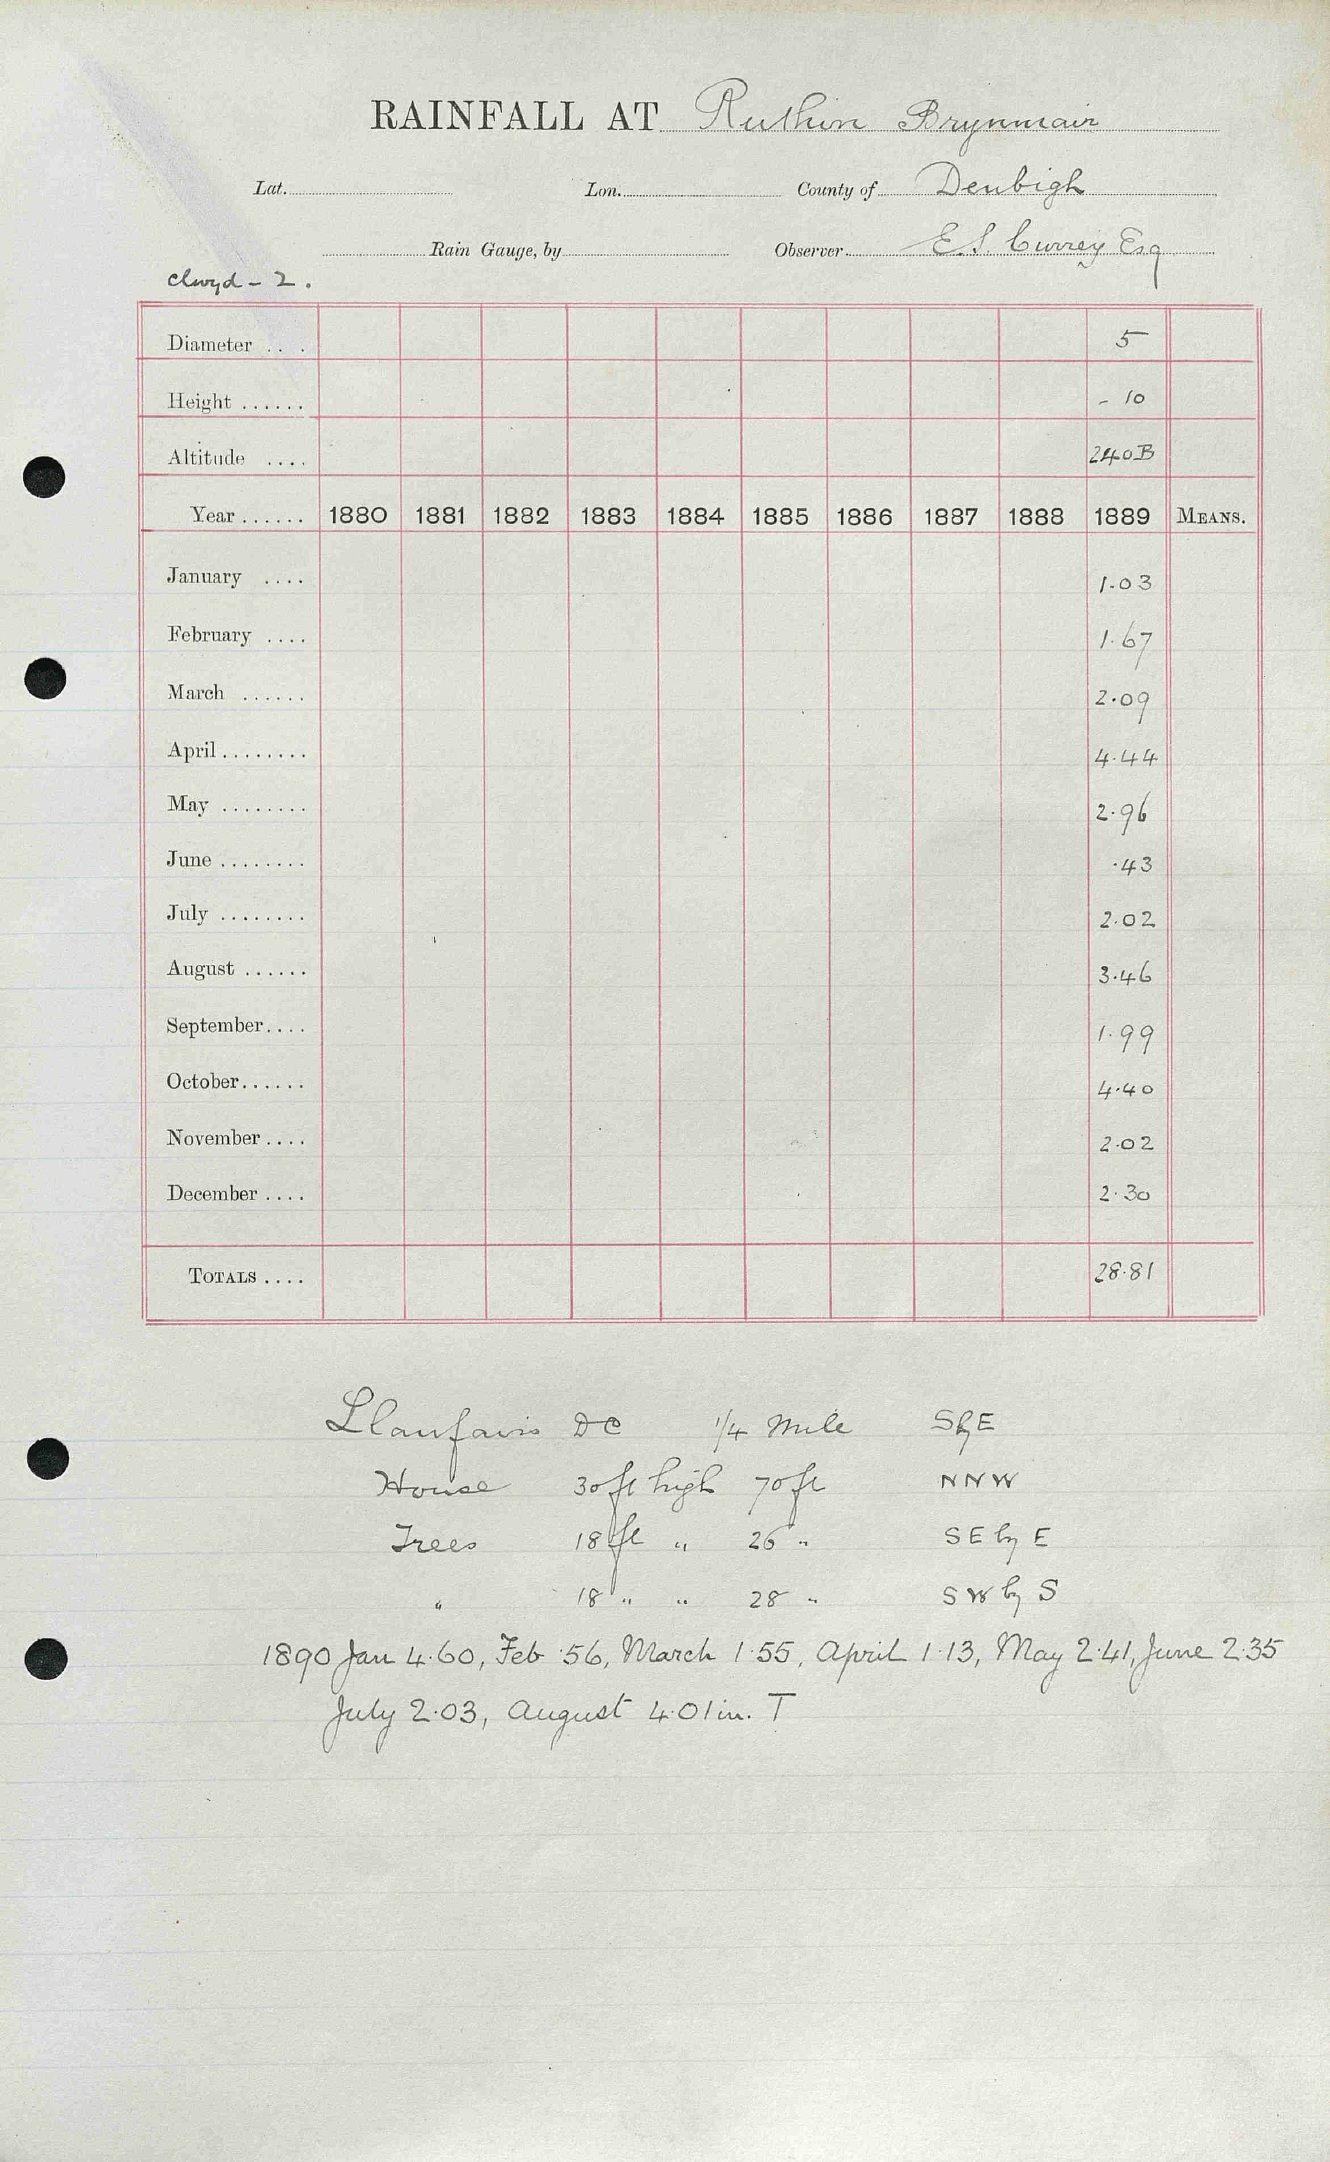 RAINFALL AT Ruthin Brynmair
Lat. Lon. County of Denbigh
Rain Gauge, by Observer E.S. Currey Esq
Clwyd - 2.
Diameter ... 5
Height ...... - 10
Altitude .... 240B
Year ...... 1880 1881 1882 1883 1884 1885 1886 1887 1888 1889 MEANS.
January .... 1.03
February .... 1.67
March ...... 2.09
April ........ 4.44
May ........ 2.96
June ........ .43
July ........ 2.02
August ...... 3.46
September .... 1.99
October ...... 4.40
November .... 2.02
December .... 2.30
TOTALS .... 28.81
Llanfair DC 1/4 Mile SbyE
House 30ft high 70ft NNW
Trees 18ft " 26 " SE by E
" 18 " " 28 " SW by S
1890 Jan 4.60, Feb .56, March 1.55, April 1.13, May 2.41, June 2.35
July 2.03, August 4.01 in. T